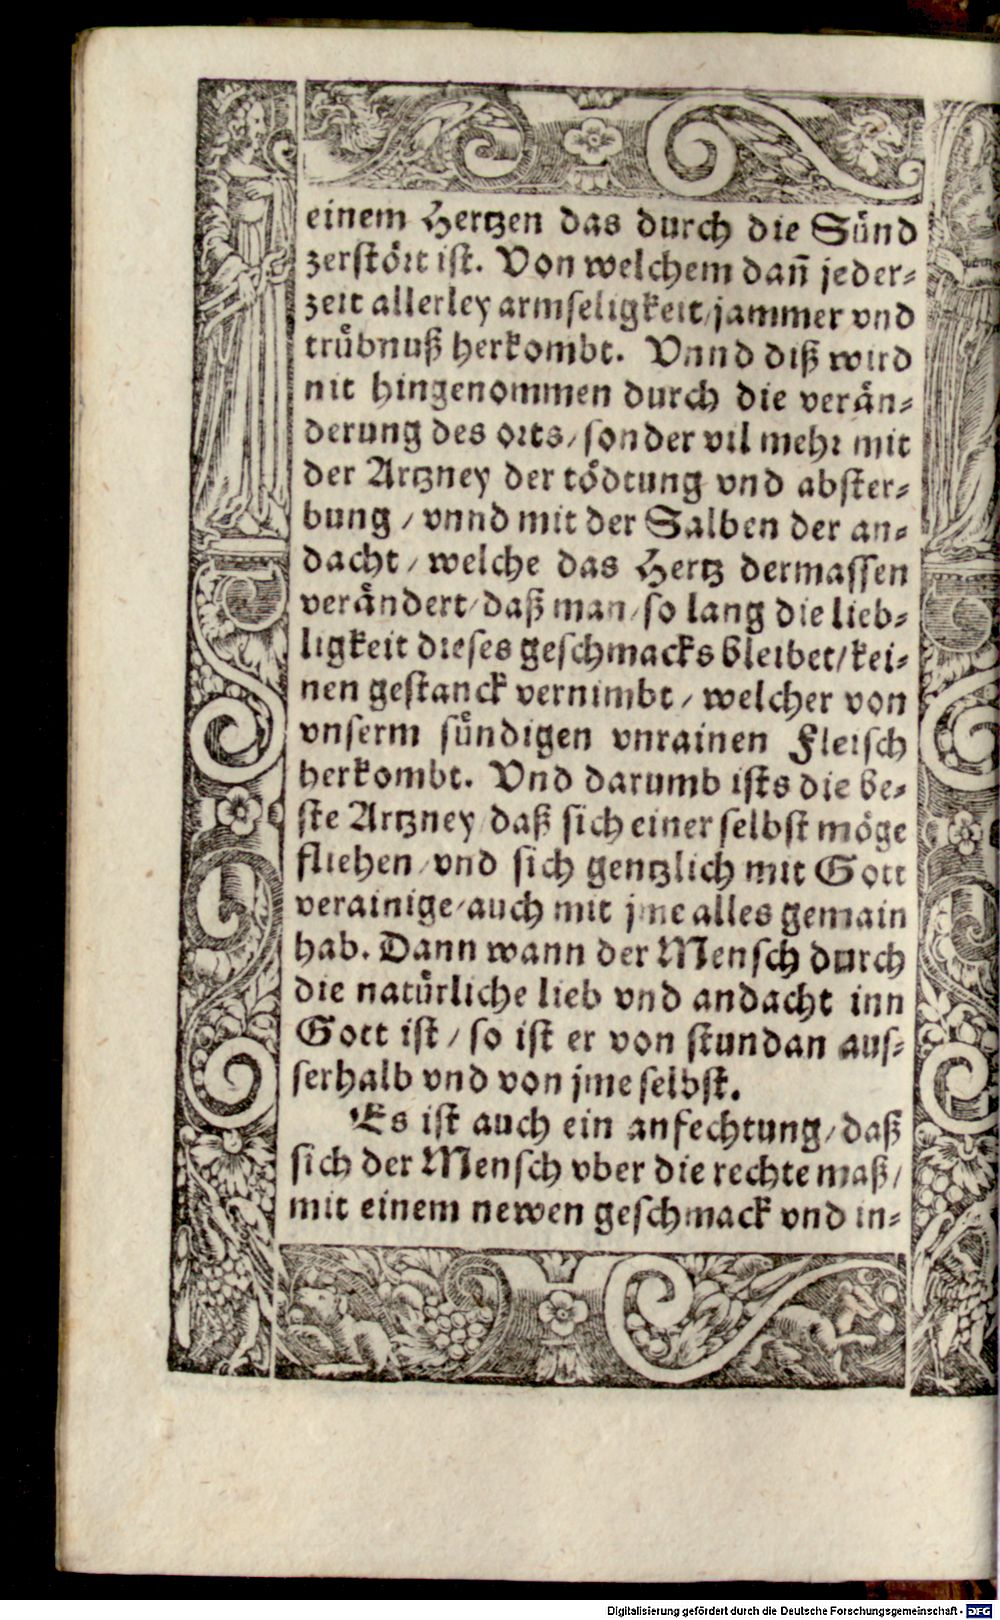 einem Hertzen das durch die Sünd
zerstört ist. Von welchem dañ jeder-
zeit allerley armseligkeit/jammer vnd
trübnuß herkombt. Vnnd diß wird
nit hingenommen durch die verän-
derung des orts/sonder vil mehr mit
der Artzney der tödtung vnd abster-
bung / vnnd mit der Salben der an-
dacht / welche das Hertz dermassen
verändert/daß man/so lang die lieb-
ligkeit dieses geschmacks bleibet/kei-
nen gestanck vernimbt / welcher von
vnserm sündigen vnrainen Fleisch
herkombt. Vnd darumb ists die be-
ste Artzney/daß sich einer selbst möge
fliehen/vnd sich gentzlich mit Gott
verainige/auch mit jme alles gemain
hab. Dann wann der Mensch durch
die natürliche lieb vnd andacht inn
Gott ist / so ist er von stundan aus-
serhalb vnd von jme selbst.
Es ist auch ein anfechtung/daß
sich der Mensch vber die rechte maß/
mit einem newen geschmack vnd in-
Digitalisierung gefördert durch die Deutsche Forschungsgemeinschaft - DFG